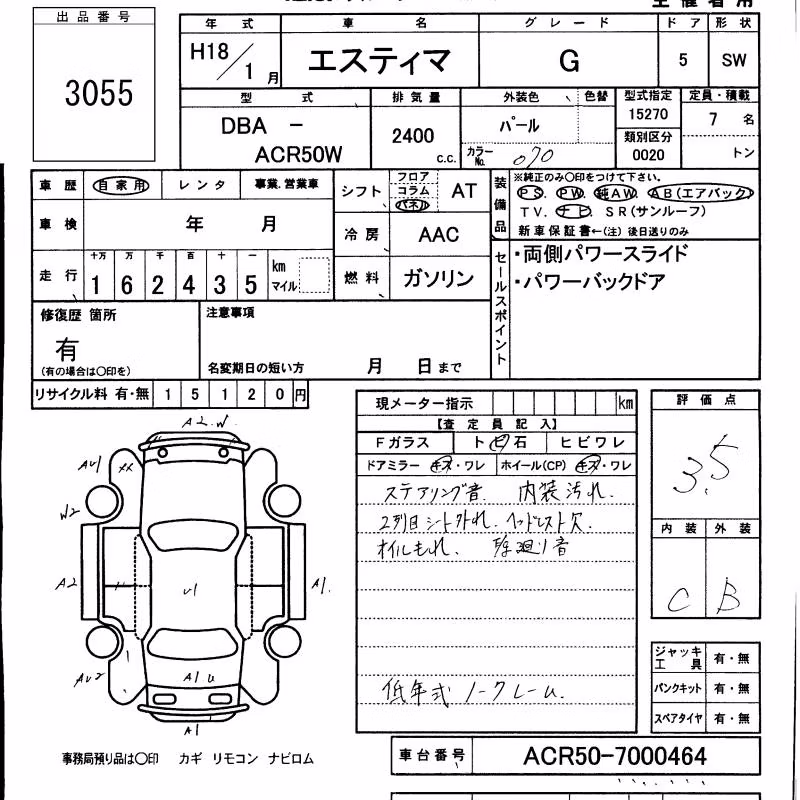 出品番号
3055
年式 車名 グレード ドア 形状
H18/1月 エスティマ G 5 SW
型式 排気量 外装色 色替 型式指定 定員・積載
DBA - ACR50W 2400 c.c. パール 15270 7名
カラーNo. 070 類別区分 0020 トン
車歴 自家用 レンタ 事業.営業車
シフト フロア コラム パネル AT
装備品 ※純正のみ〇印をつけて下さい。
PS. PW. 純AW. AB(エアバック)
TV. ナビ. SR(サンルーフ)
新車保証書←(注) 後日送りのみ
車検 年 月
冷房 AAC
走行 十万 万 千 百 十 一
162435 km マイル
燃料 ガソリン
セールスポイント
・両側パワースライド
・パワーバックドア
修復歴 箇所
有
(有の場合は〇印を)
注意事項
名変期日の短い方 月 日まで
リサイクル料 有・無 15120円
現メーター指示 km
【査定員記入】
Fガラス トビ石 ヒビワレ
ドアミラー キズ・ワレ ホイール(CP) キズ・ワレ
ステアリング音. 内装汚れ.
2列目シート外れ. ヘッドレスト欠.
オイルもれ. 足廻り音
低年式 ノークレーム.
評価点
3.5
内装 外装
C B
A2.W
AU1 XX
W2
A2
U1
A1.
AU2
A1 U
A1
ジャッキ工具 有・無
パンクキット 有・無
スペアタイヤ 有・無
事務局預り品は〇印 カギ リモコン ナビロム
車台番号 ACR50-7000464